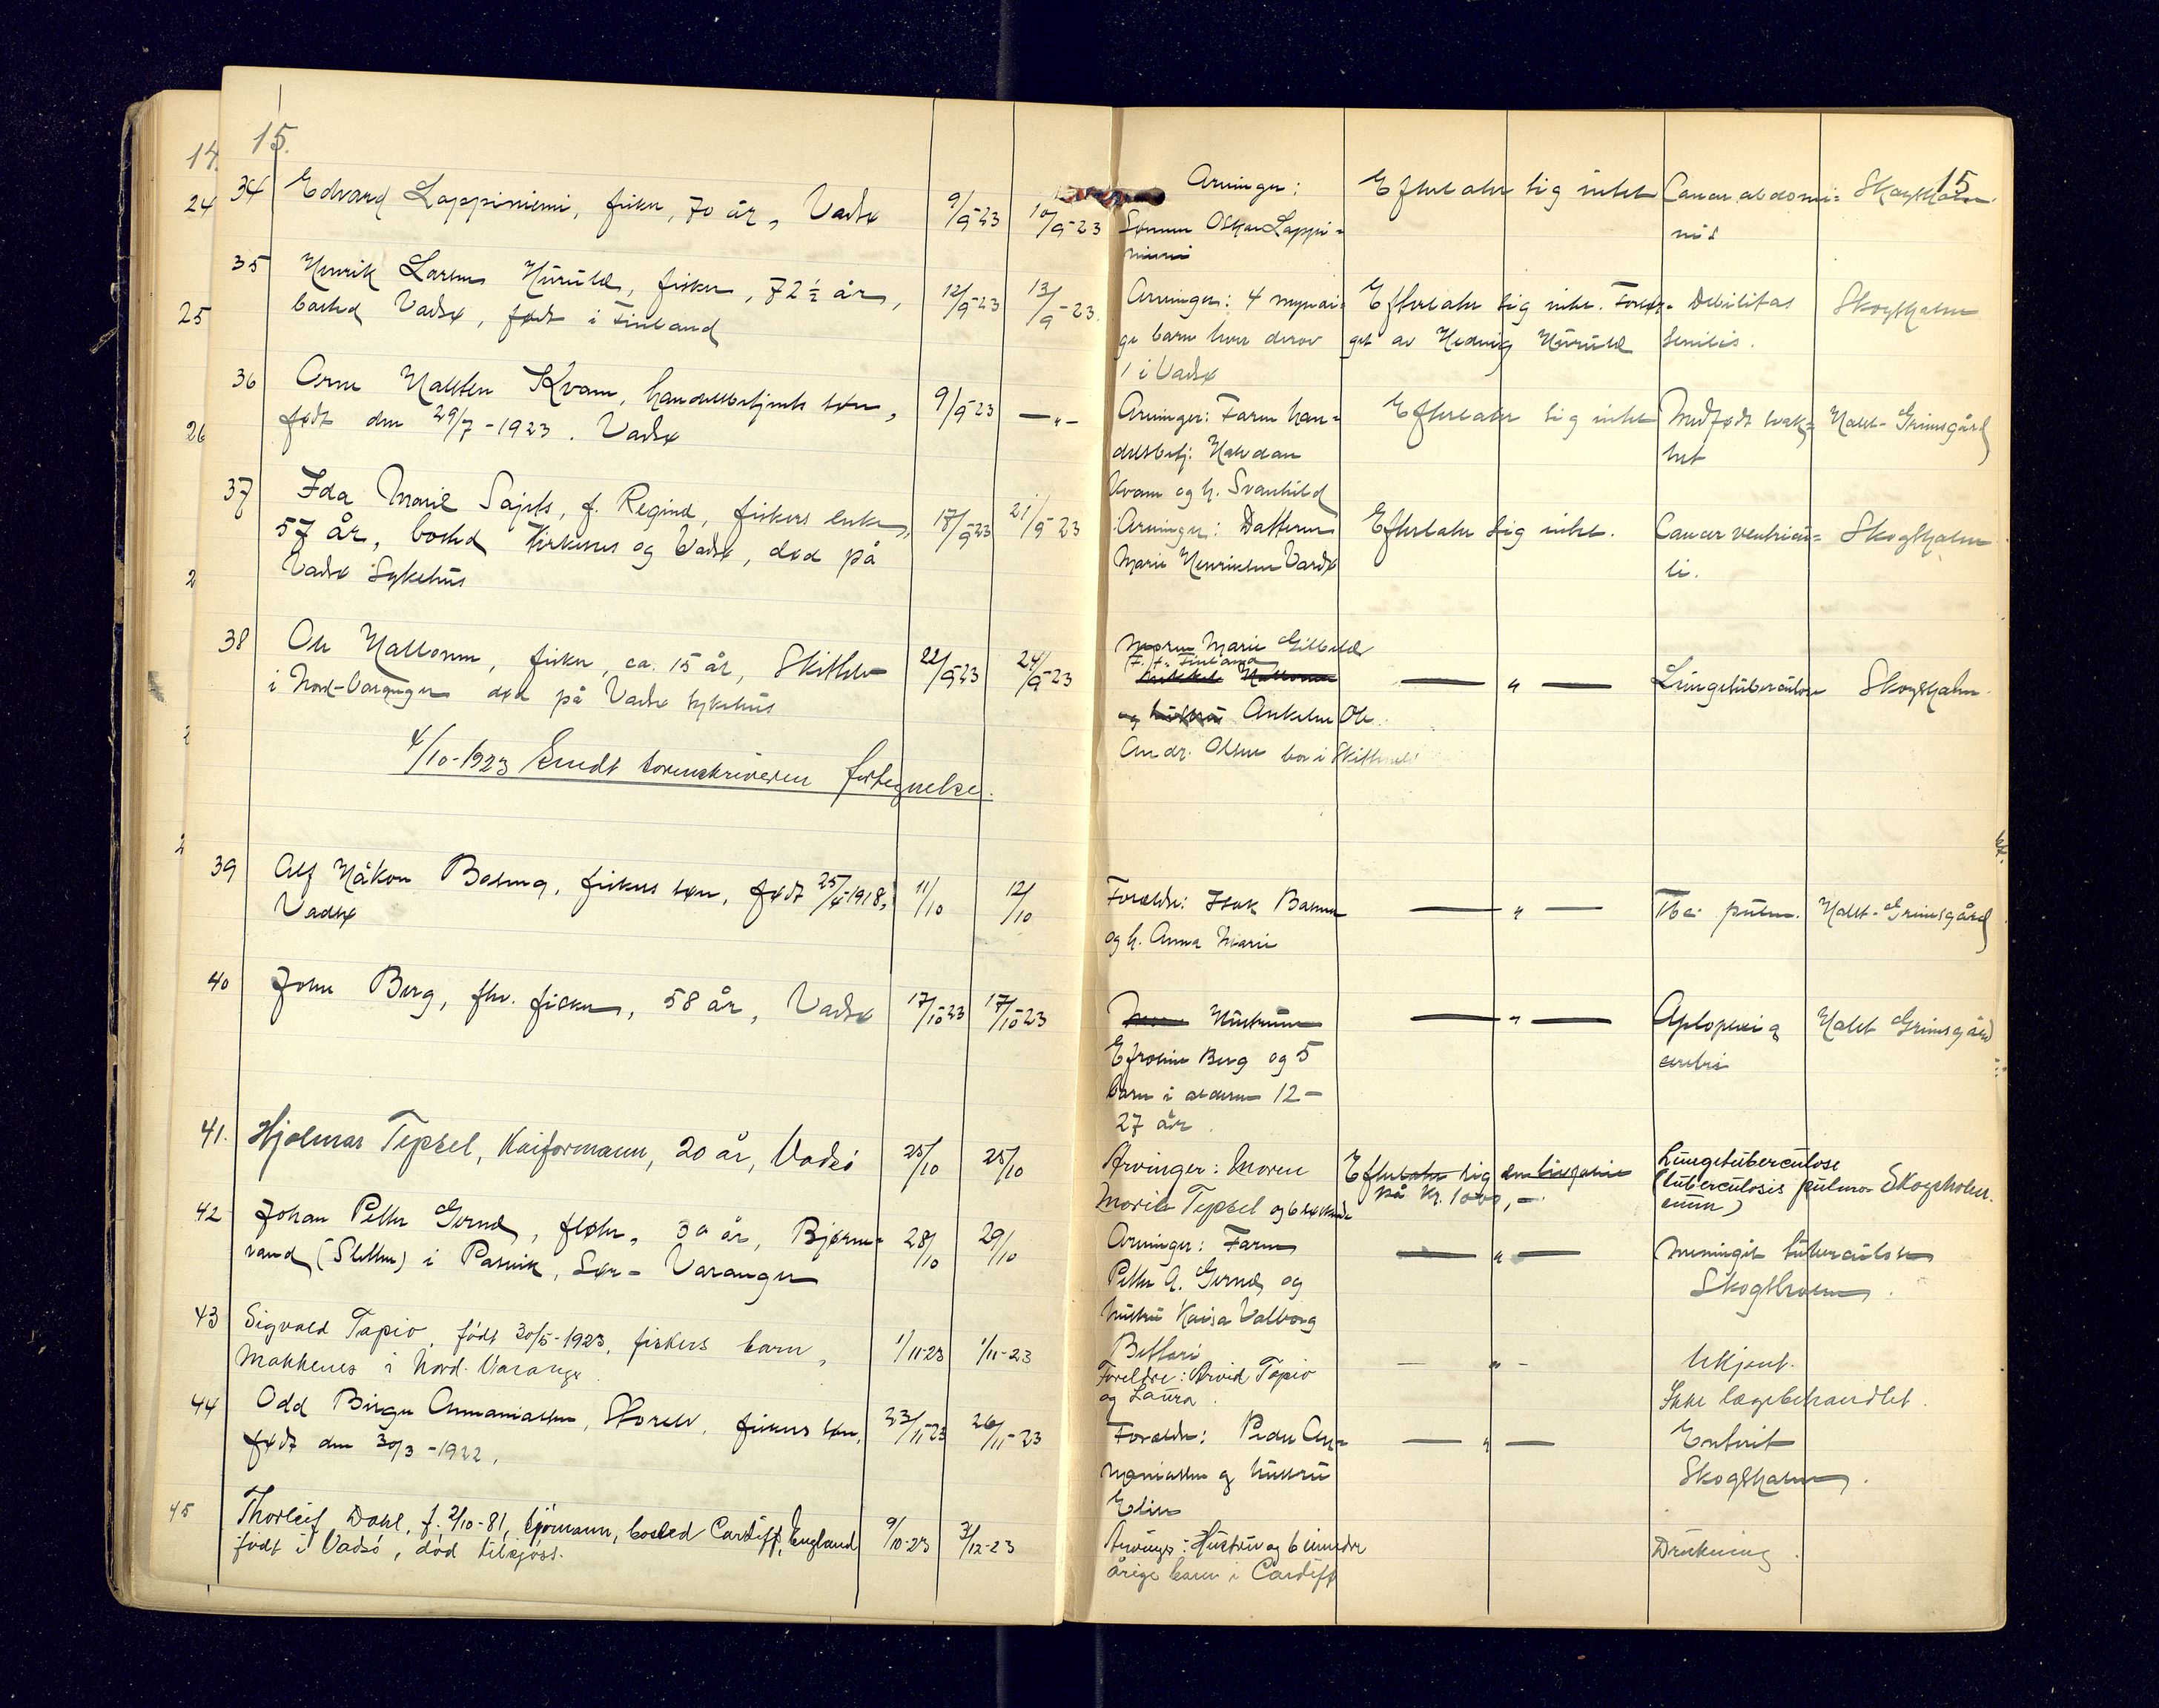 15.
34 Edvard Lappiniemi, fisker, 70 år, Vadsø 9/9-23 10/9-23
35 Henrik Larsen, fisker, 72 ½ år, 12/9-23 13/9-23.
bosted Vadsø, født i Finland
36 Arne Halsten Kvam, handelsbetjents søn, 9/9-23 —"—
født den 29/7-1923. Vadsø
37 Ida Marie Sajets, f. Regina, fiskers enke, 17/9-23 21/9-23
57 år, bosted Kirkenes og Vadsø, død på
Vadsø Sykehus
38 Ole Hallonen, fisker, ca. 15 år, Skittelv 22/9-23 24/9-23
i Nord-Varanger død på Vadsø sykehus
4/10-1923 Sendt sorenskriveren fortegnelse.
39 Alf Håkon Basma, fiskers søn, født 1918, 11/10 12/10
Vadsø
40 John Berg, fhv. fisker, 58 år, Vadsø 17/10-23 17/10-23
41. Hjalmar Tepsel, Kaiformann, 20 år, Vadsö 25/10 25/10
42 Johan Petter Gernes, fløter, 30 år, Bjørne= 28/10 29/10
vand (Sletten) i Pasvik, Sør-Varanger
43 Sigvald Tapio, född 30/5-1923, fiskers barn, 1/11-23 1/11-23
Makkenes i Nord-Varanger
44 Odd Birger Annaniassen, Storelv, fiskers søn, 23/11-23 26/11-23
født den 30/3-1922.
45 Thorleif Dahl, f. 2/10-81, sjømann, bosted Cardiff, England 9/10-23 3/12-23
född i Vadsö, död tilsjøss.
14.
24
25
26
15
Arvinger:
Sønnen Oskar Lappi=
niemi
Efterlater sig intet
Cancer abdomi=
nis
Skogsholm.
Arvinger: 4 myndi=
ge barn hvor derav
1 i Vadsø
Efterlater sig intet. Forsør=
get av Hedvig
Debilitas
senilis.
Skogsholm
Arvinger: Faren han=
delsbetj. Halvdan
Kvam og h. Svanhild
Efterlater sig intet
Medfødt svak=
het
Halst-Grimsgård
Arvinger: Datteren
Marie Henriksen Vardø
Efterlater sig intet.
Cancer ventricu=
li.
Skogsholm
Moren Marie
Finland
og hustru Onkelen Ole
Andr. Olsen bor i Skittelv
— " —
Lungetuberculose
Skogsholm.
Forældre: Isak Basma
og h. Anna Marie
— " —
Tbc. pulm.
Halst-Grimsgård
Moren Hustruen
Efrosine Berg og 5
barn i alderen 12-
27 år.
— " —
Aploplexia
cerebri
Halst Grimsgård
Arvinger: Moren
Maria Tepsel og 6 søskende
Efterlater sig en livspolice
på kr. 1000,-
Lungetuberculose
(tuberculosis pulmo-
num)
Skogsholm.
Arvinger: Faren
Petter A. Gernes og
hustru Kaisa Valborg
— " —
Meningit tuberculose
Skogsholm.
Bettari
Foreldre: Arvid Tapio
og Laura.
— " —
Ukjent.
Ikke lægebehandlet.
Forældre: Peder An=
naniassen og hustru
Elise
— " —
Enterit
Skogsholm.
Arvinger: Hustru og 6 umynd
årige barn i Cardiff
Drukning.